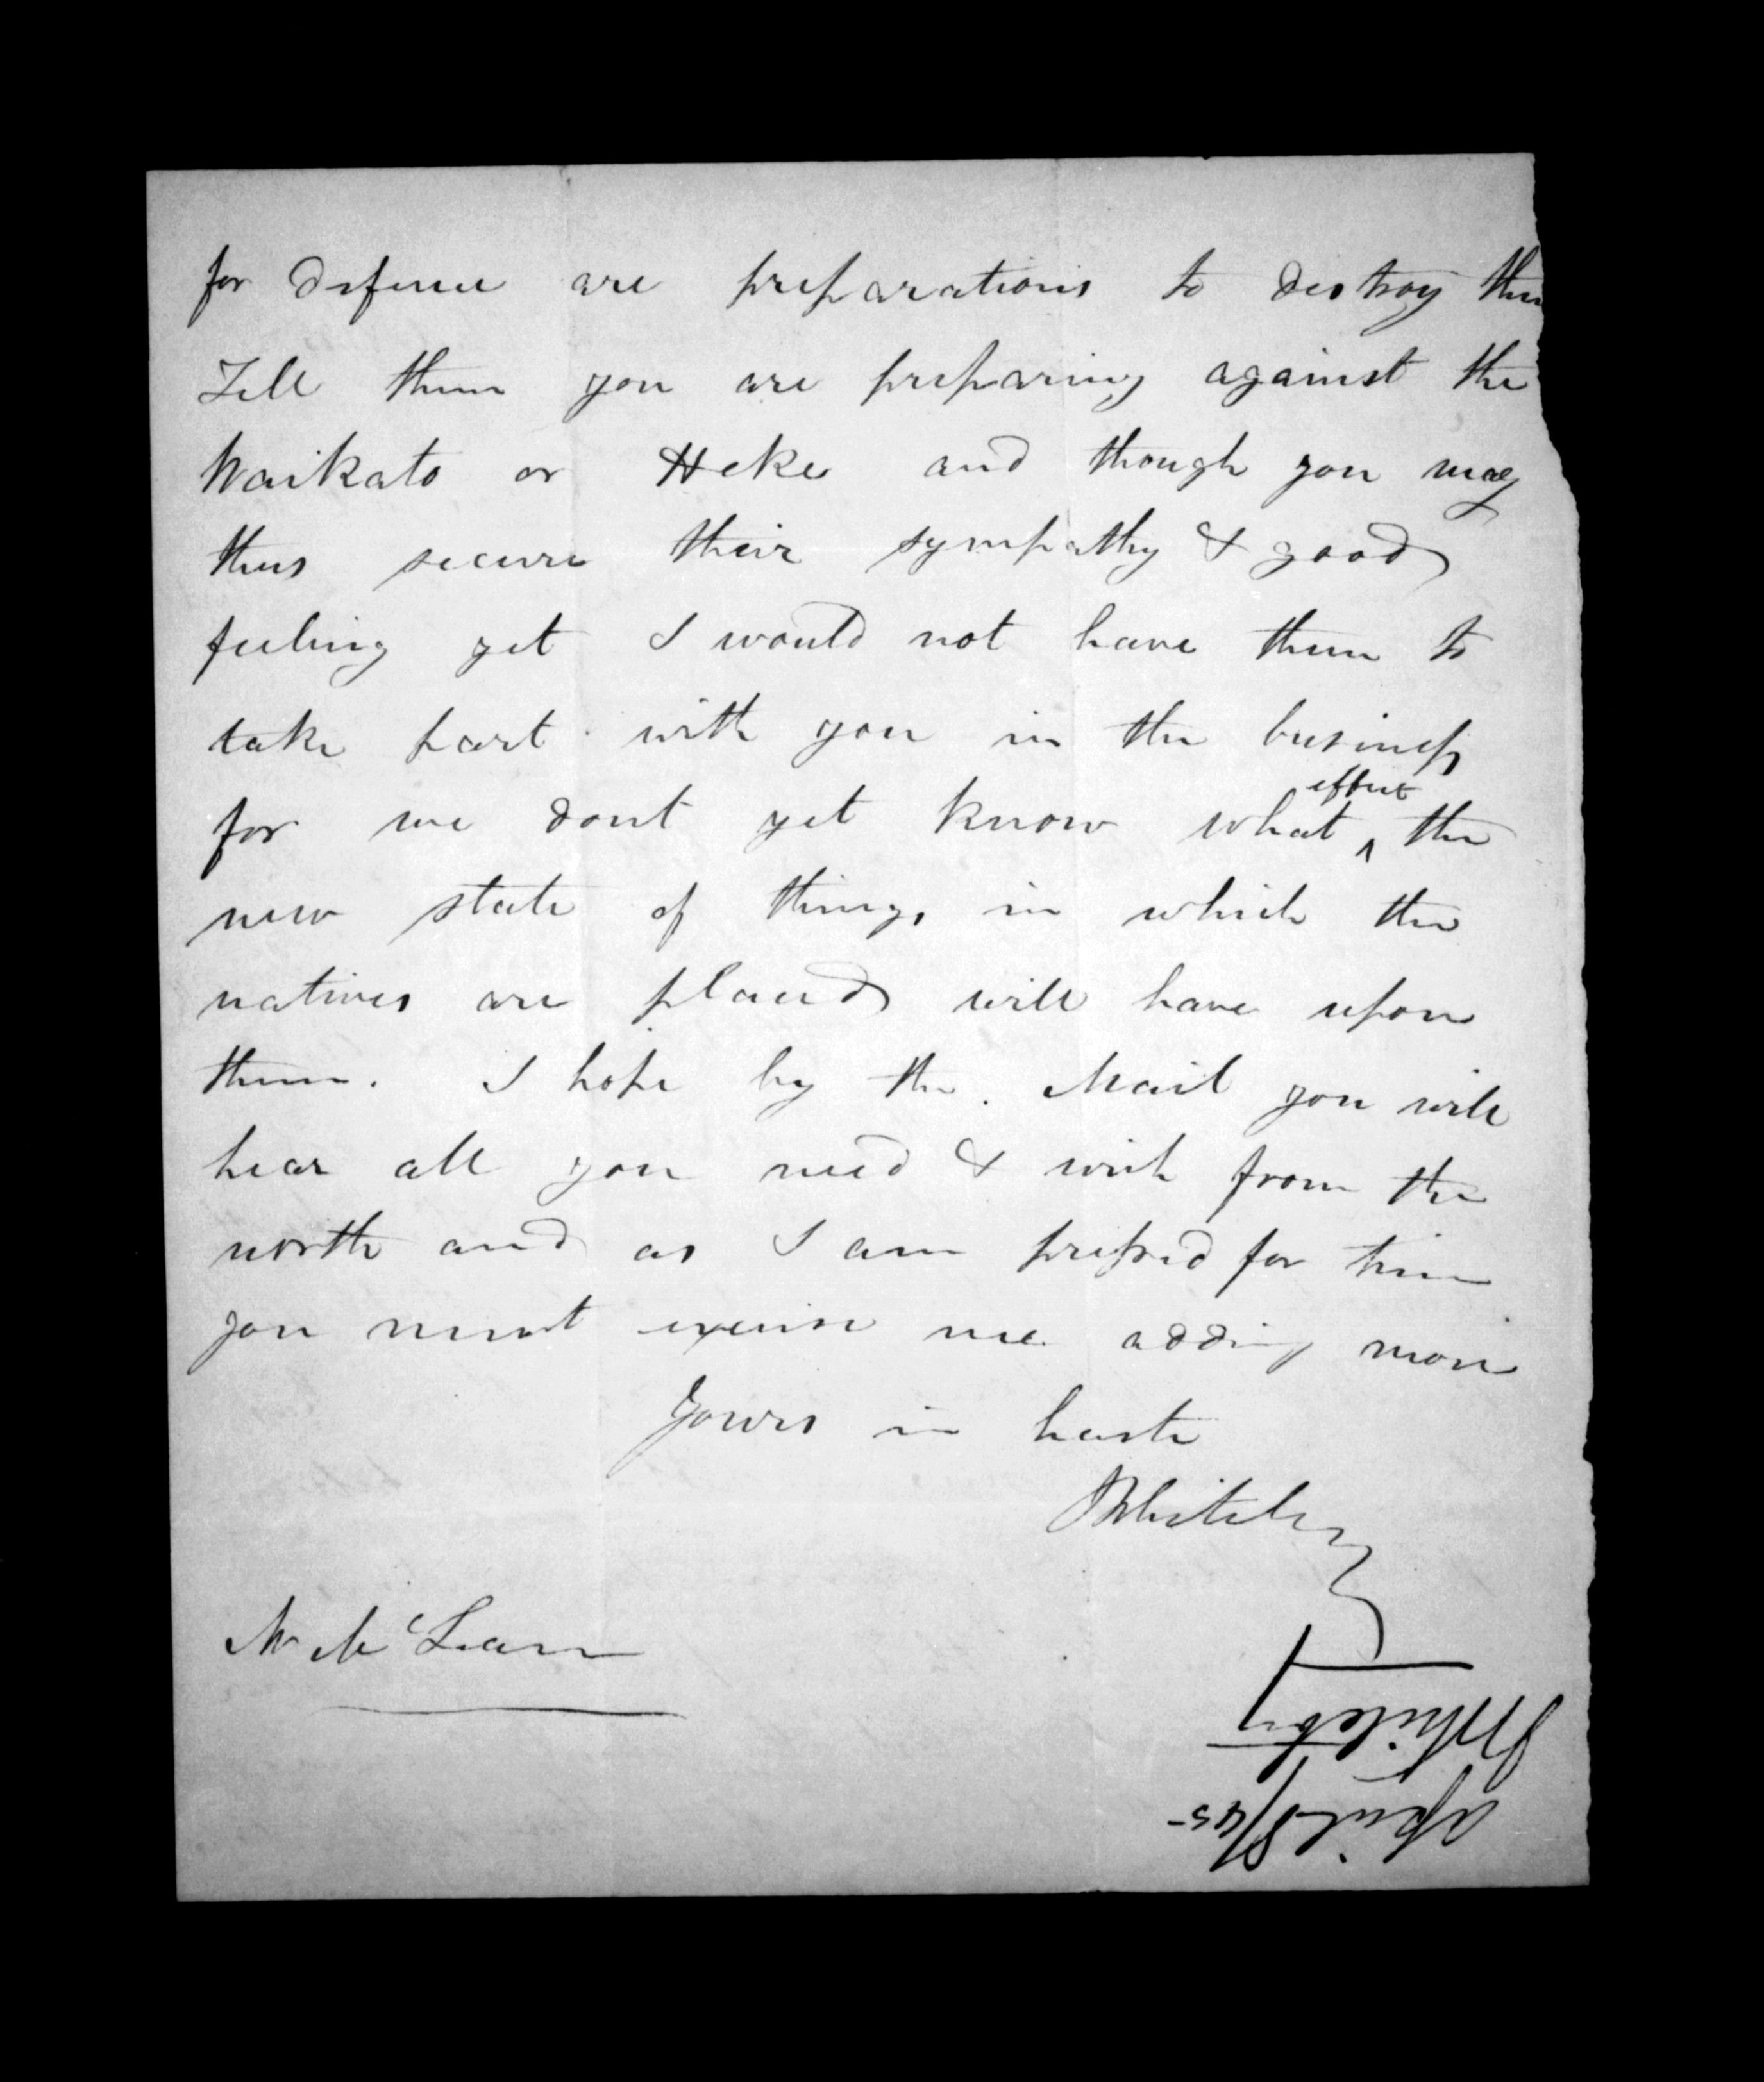 for defence are preparations to destroy them
Tell them you are preparing against the
Waikato or Heke and though you may
thus secure their sympathy & good
feeling yet I would not have them to
take part with you in the business
for we dont yet know what ^effect the
new state of things in which the
natives are placed will have upon
them. I hope by the Mail you will
hear all you need & wish from the
north and as I am pressed for time
you must excuse me adding more
Yours in haste
J Whiteley
Mr McLean
J Whiteley
April 8/45